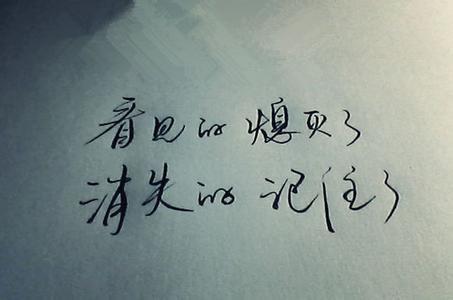 看见的 熄灭了
消失的 记住了